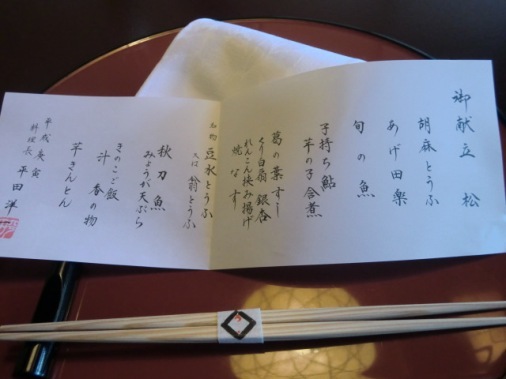 御献立 松
胡麻とうふ
あげ田楽
旬の魚
子持ち鮎
芋の子含煮
葛の葉すし
くり白扇 銀杏
れんこん挟み揚げ
焼なす
名物 豆水とうふ
又は 翁とうふ
秋刀魚
みょうが天ぷら
きのこご飯
汁 香の物
芋きんとん
平成庚寅
料理長 平田洋